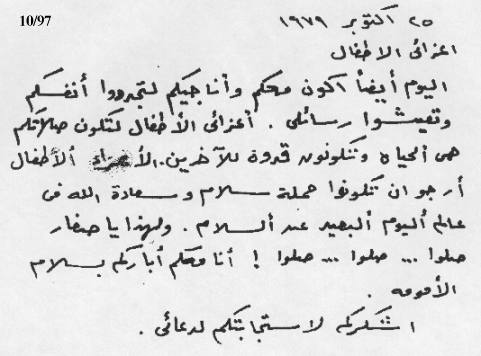 10/97
٢٥ اكتوبر ١٩٧٩
اعزائى الاطفال
اليوم أيضاً اكون معكم وأناجيكم لتجددوا أنفسكم
وتعيشوا رسائلى . أعزائى الأطفال لتكون صلاتكم
هى الحياه وتكونون قدوة للآخرين. الأعزاء الأطفال
أرجو ان تكونوا حملة سلام وسعادة الله فى
عالم اليوم البعيد عند السلام . ولهذا يا صغار
صلوا ... صلوا ... صلوا ! أنا معكم أبارككم بسلام
الأمومه .
اشكركم لاستجابتكم لدعائى .